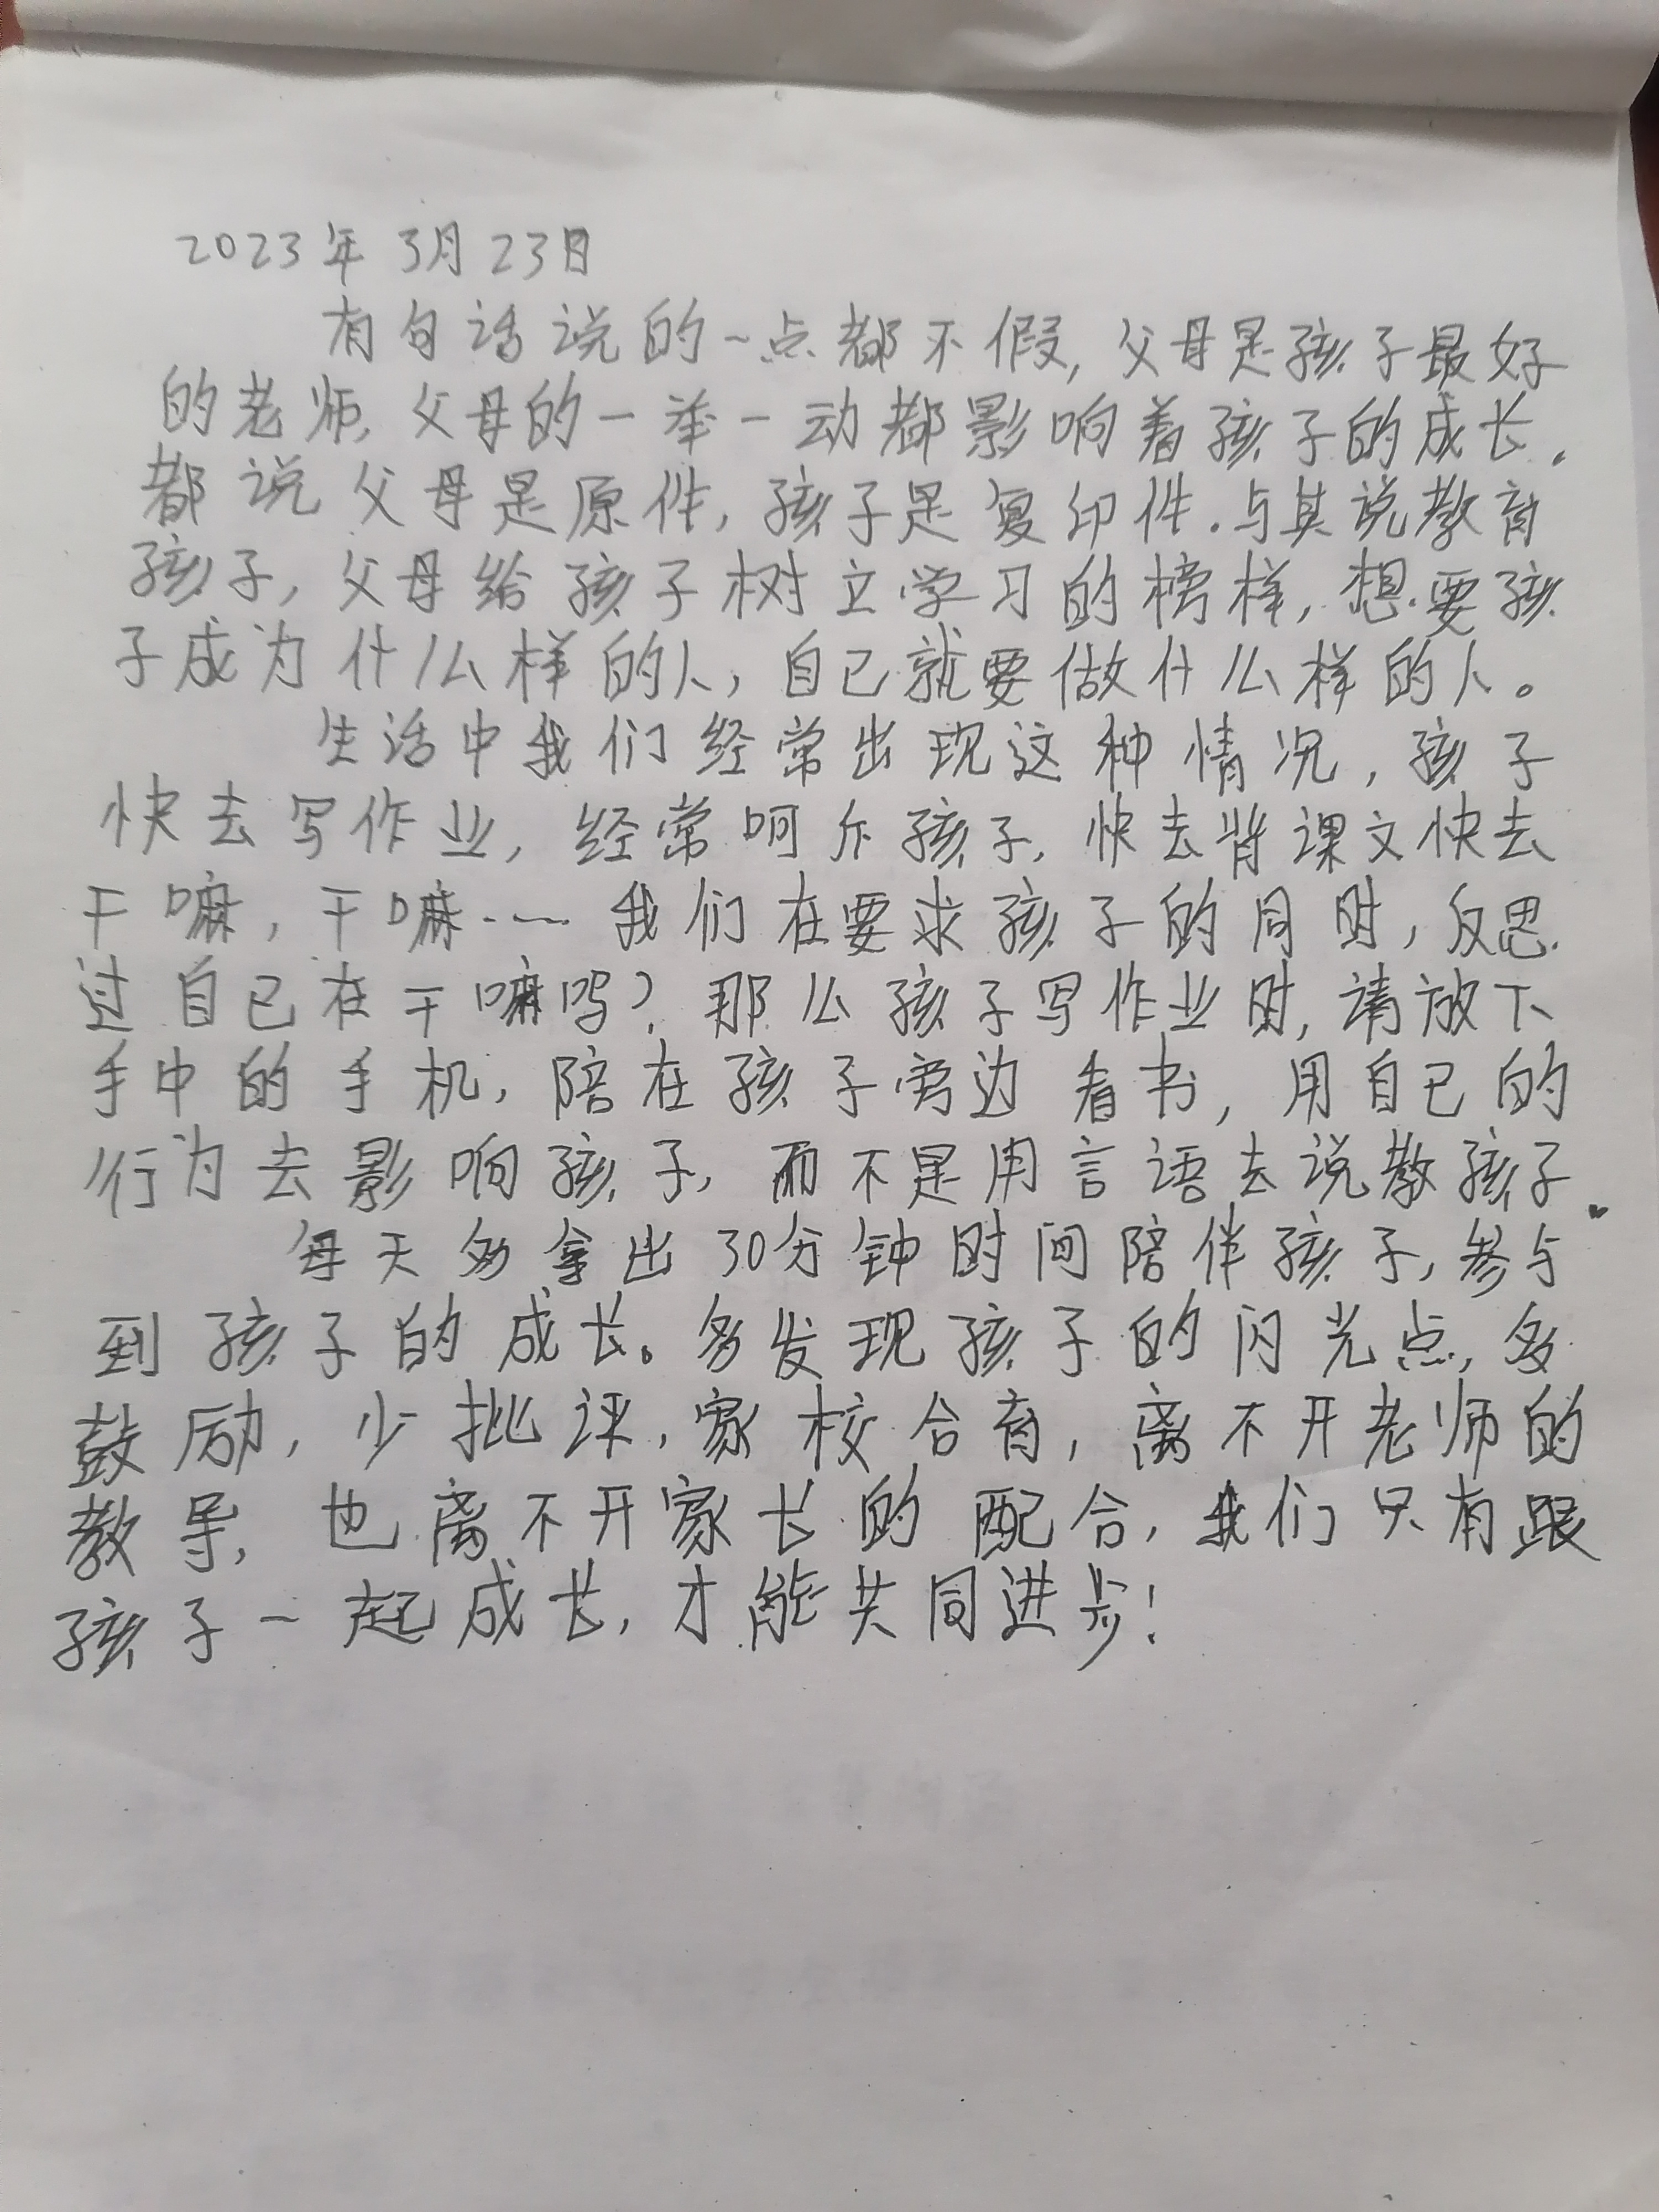 2023年3月23日
有句话说的一点都不假,父母是孩子最好
的老师,父母的一举一动都影响着孩子的成长.
都说父母是原件,孩子是复印件.与其说教育
孩子,父母给孩子树立学习的榜样,想要孩
子成为什么样的人,自己就要做什么样的人。
生活中我们经常出现这种情况,孩子
快去写作业,经常呵斥孩子,快去背课文快去
干嘛,干嘛……我们在要求孩子的同时,反思
过自己在干嘛吗?那么孩子写作业时,请放下
手中的手机,陪在孩子旁边看书,用自己的
行为去影响孩子,而不是用言语去说教孩子.
每天多拿出30分钟时间陪伴孩子,参与
到孩子的成长。多发现孩子的闪光点,多
鼓励,少批评,家校合育,离不开老师的
教导,也离不开家长的配合,我们只有跟
孩子一起成长,才能共同进步!